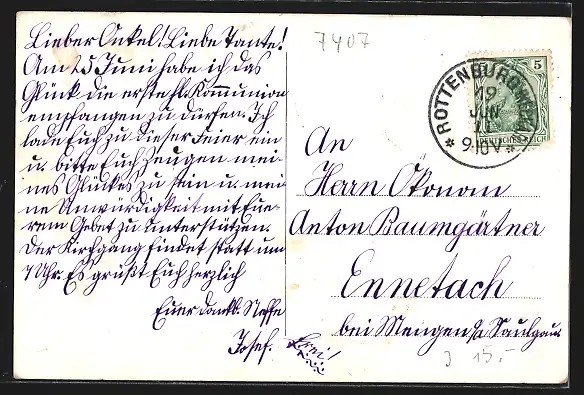 Lieber Onkel! Liebe Tante!
Am 25 Juni habe ich das
Glück die erste hl. Kommunion
empfangen zu dürfen. Ich
lade Euch zu dieser Feier ein
u. bitte Euch Zeugen mei-
nes Glückes zu sein u. mei-
ne Unwürdigkeit mit Eue-
rem Gebet zu unterstützen.
Der Kirchgang findet statt um
7 Uhr. Es grüßt Euch herzlich
Euer dankb. Neffe
Josef.
7407
5
ROTTENBURG
19
JUN
9-10V
DEUTSCHES REICH
An
Herrn Ökonom
Anton Baumgärtner
Ennetach
bei Mengen Saulgau
15,-